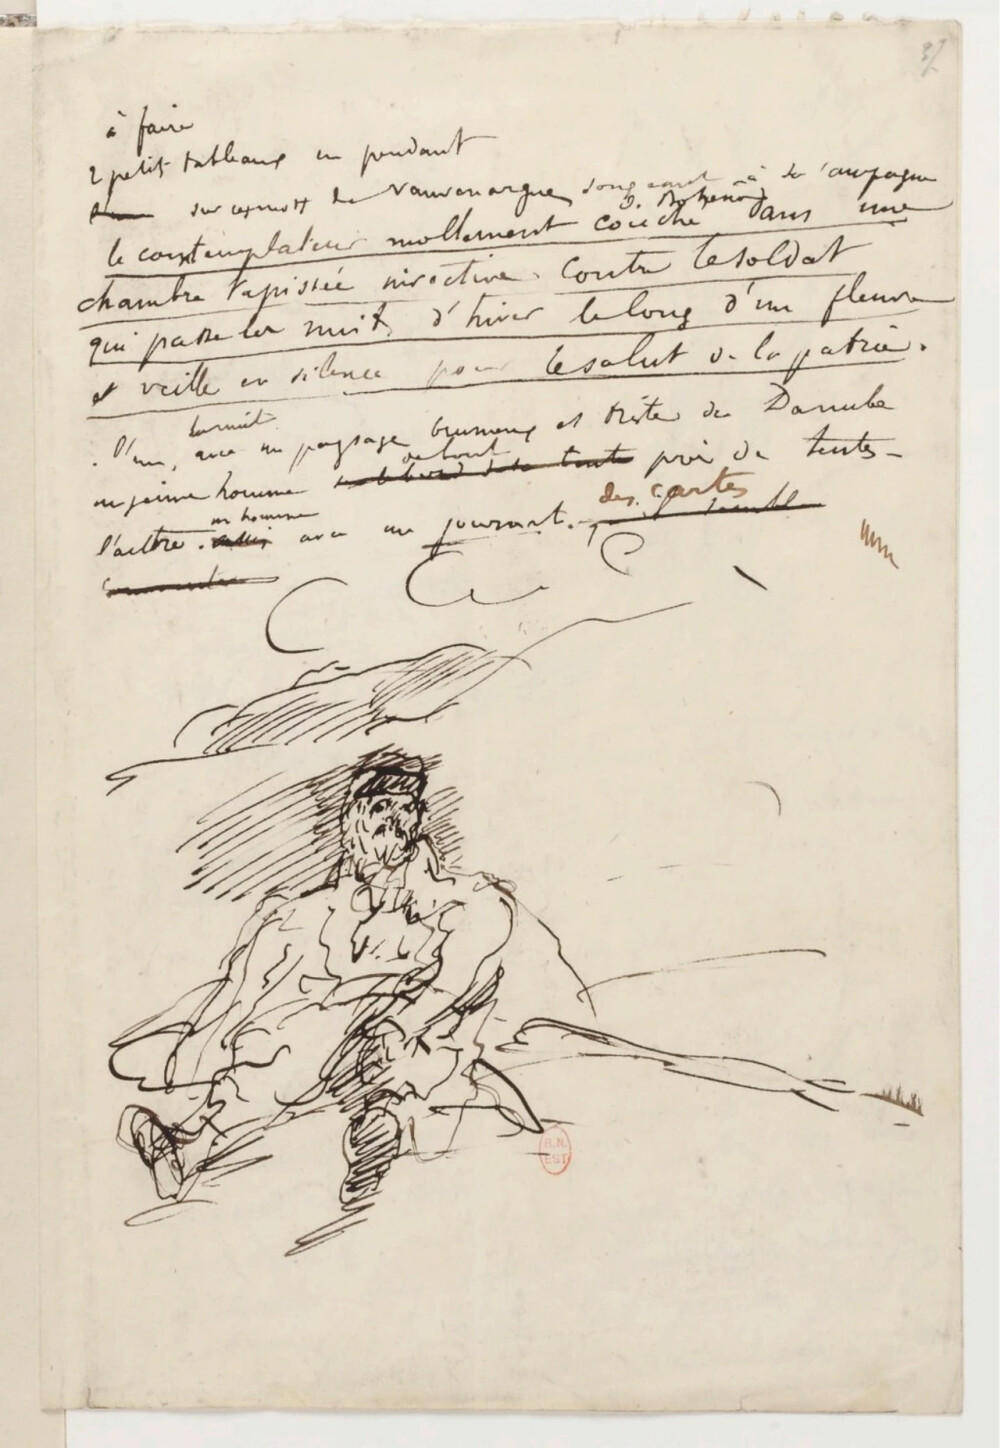 37
à faire
2 petits tableaux en pendant
sur un mot de Vauvenargues songeant à sa campagne
de Bohême
le contemplateur mollement couché dans une
chambre tapissée invective contre le soldat
qui passe les nuits d'hiver le long d'un fleuve
et veille en silence pour le salut de la patrie.
la nuit
. l'un, avec un paysage brumeux et triste du Danube
debout
un jeune homme près de tentes –
un homme
l'autre. avec un journal. des cartes
B.N.
EST